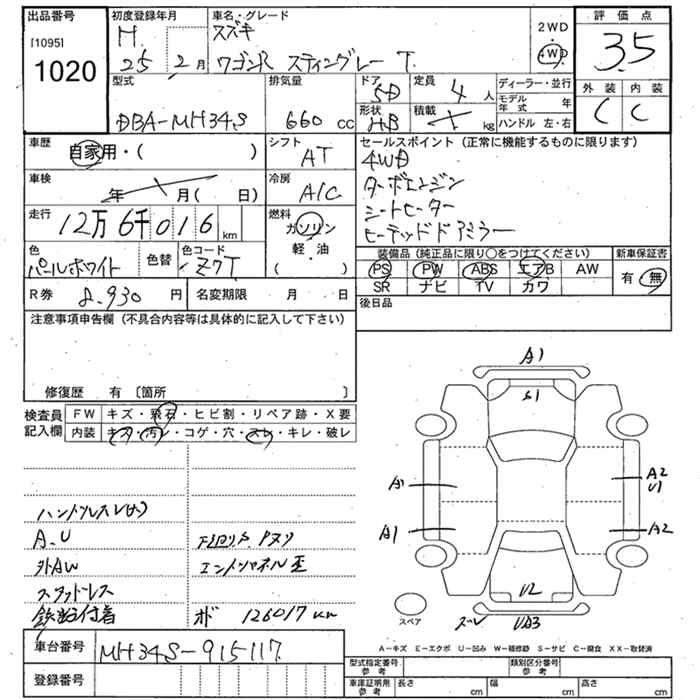 出品番号
[1095]
1020
初度登録年月
H.
25 2月
車名・グレード
スズキ
ワゴンR スティングレー T
2WD
4WD
評価点
3.5
外装 内装
C C
型式
DBA-MH34S
排気量
660 cc
ドア
5D
形状
HB
定員
4人
積載
kg
ディーラー・並行
モデル年式 年
ハンドル 左・右
車歴
自家用・( )
シフト
AT
セールスポイント (正常に機能するものに限ります)
4WD
ターボエンジン
シートヒーター
ヒーテッドドアミラー
車検
年 月( 日)
冷房
A/C
走行
12万6千016km
燃料
ガソリン
軽・油
( )
色
パールホワイト
色替
色コード
Z7T
装備品 (純正品に限り〇をつけてください)
PS PW ABS エアB AW
SR ナビ TV カワ
新車保証書
有・無
R券 8,930円
名変期限 月 日
後日品
注意事項申告欄 (不具合内容等は具体的に記入して下さい)
修復歴 有 〔箇所 〕
検査員記入欄
FW キズ・飛石・ヒビ割・リペア跡・X要
内装 キズ・汚レ・コゲ・穴・スレ・キレ・破レ
A.U
外AW
スタッドレス
鉄
ボ 126017km
A1
S1
A1
A1
A2
U1
A2
U2
UA3
スレ
スペア
A−キズ E−エクボ U−凹み W−補修跡 S−サビ C−腐食 XX−取替済
車台番号
MH34S-915117
登録番号
型式指定番号 参考
類別区分番号 参考
車庫証明用 参考
長さ cm
幅 cm
高さ cm